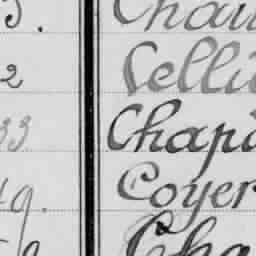 5. Chau
2 Celli
33 Chapu
49. Coyer
Cha